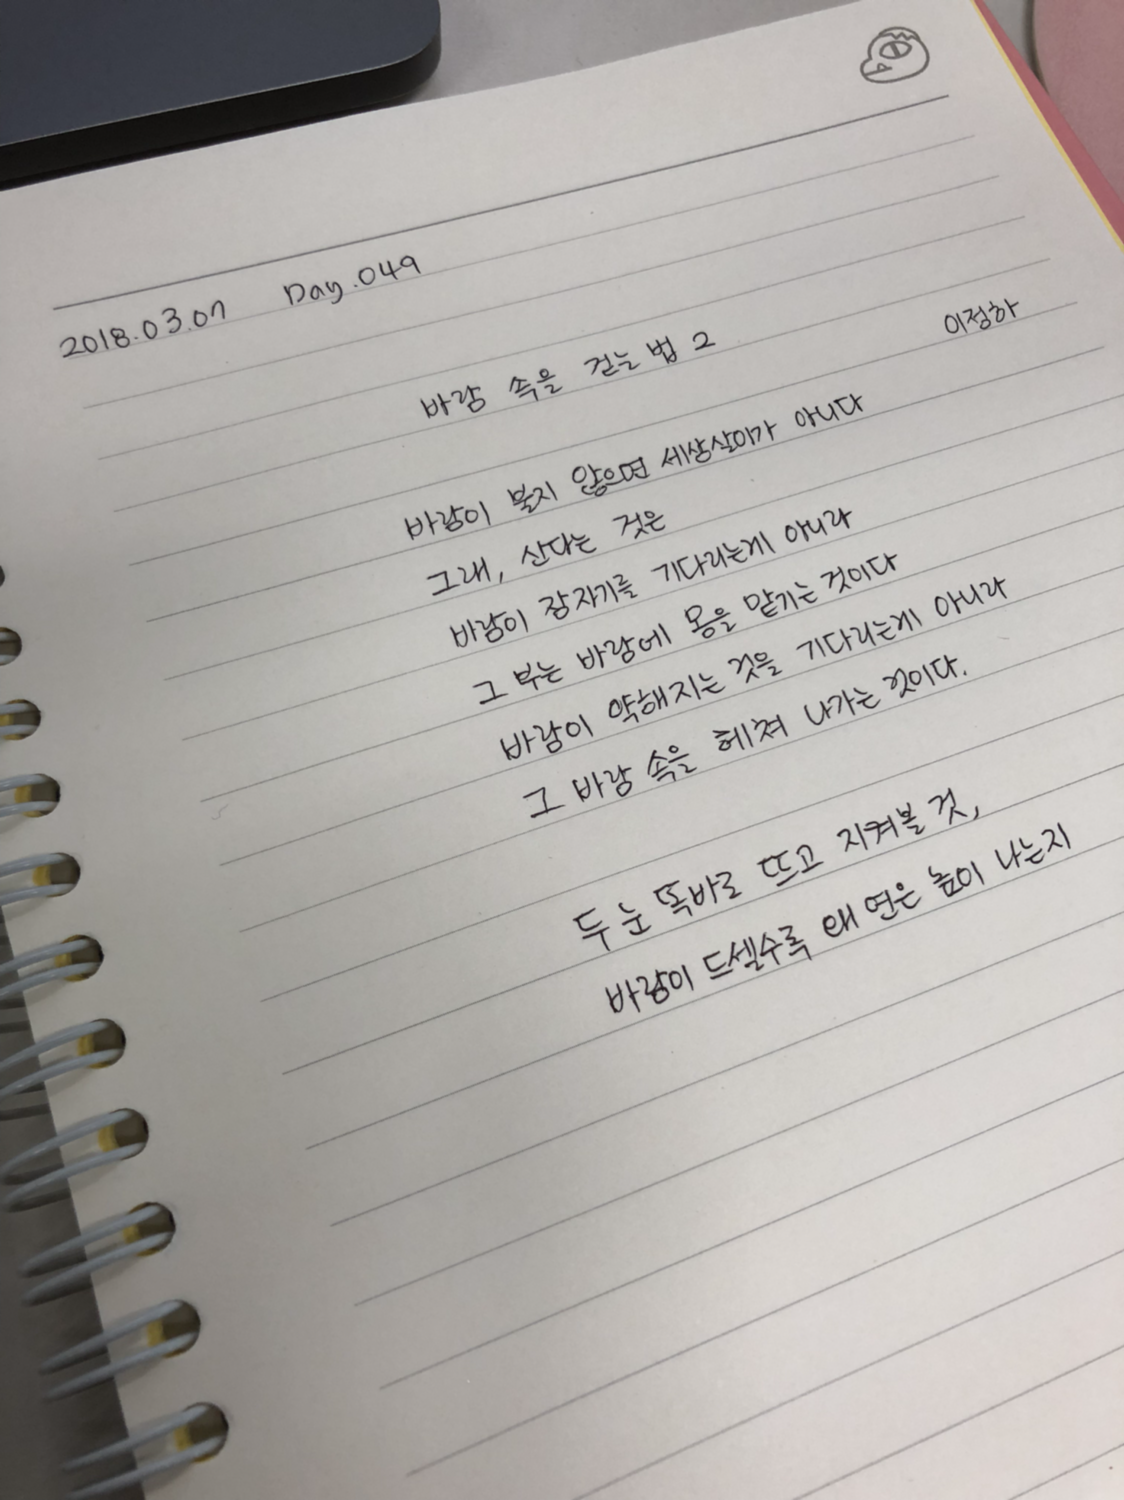 2018.03.07 Day.049
바람 속을 걷는 법 2
이정하
바람이 불지 않으면 세상살이가 아니다
그래, 산다는 것은
바람이 잠자기를 기다리는게 아니라
그 부는 바람에 몸을 맡기는 것이다
바람이 약해지는 것을 기다리는게 아니라
그 바람 속을 헤쳐 나가는 것이다.
두 눈 똑바로 뜨고 지켜볼 것,
바람이 드셀수록 왜 연은 높이 나는지